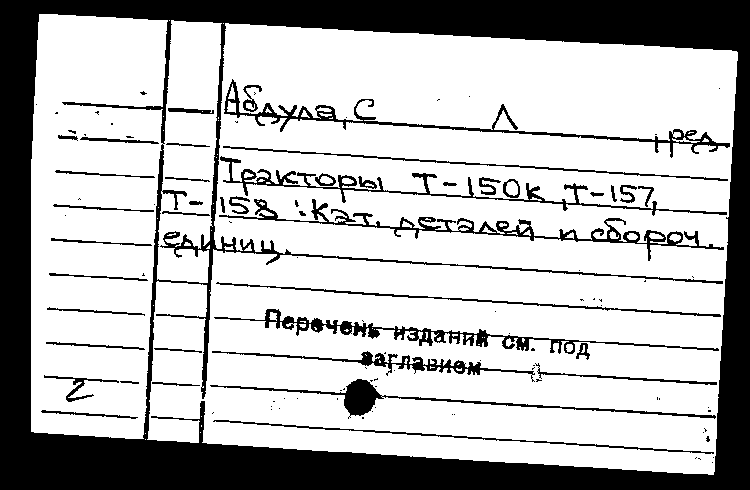 Абдула, С Л , ред
Тракторы Т-150К, Т-157,
Т-158 : Кат. деталей и сбороч.
единиц.
Перечень изданий см. под
заглавием
2